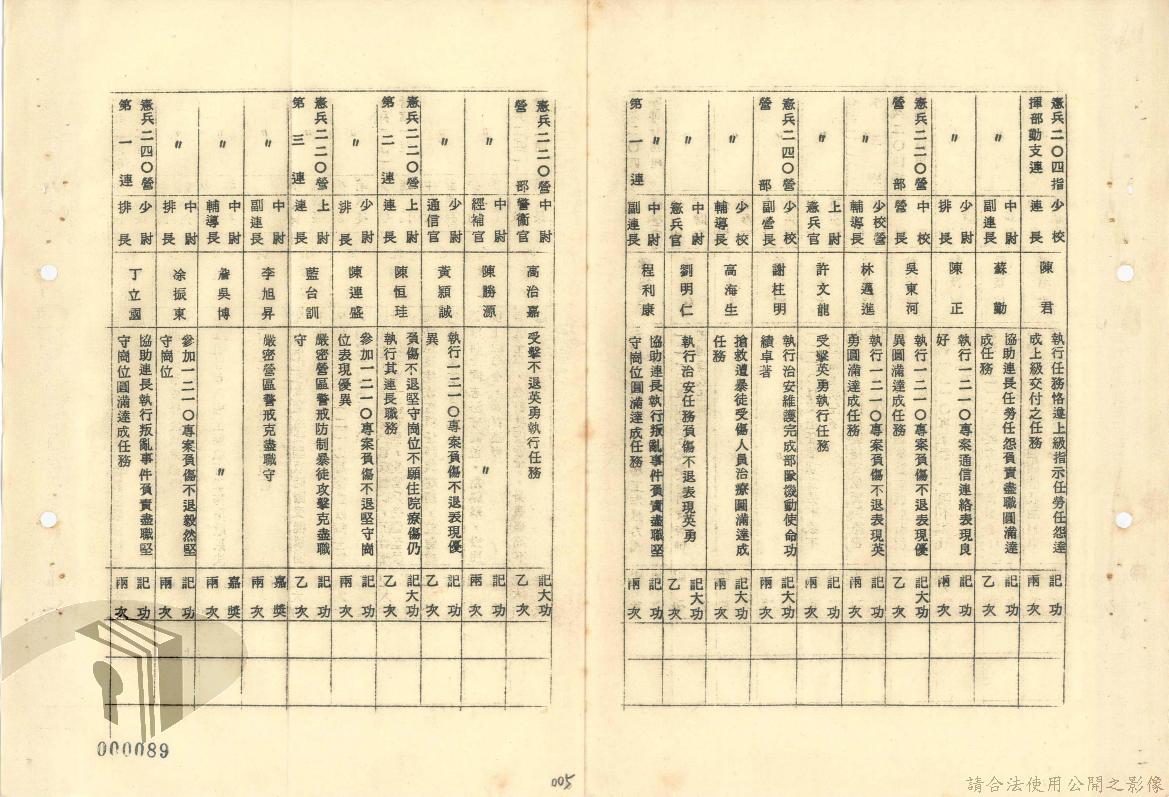 憲兵二〇四指揮部勤支連
少校連長
陳君
執行任務恪遵上級指示任勞任怨達成上級交付之任務
記功兩次
〃
中尉副連長
蘇勤
協助連長任勞任怨負責盡職圓滿達成任務
記功兩次
〃
少尉排長
陳正
執行一二一〇專案通信連絡表現良好
記功兩次
憲兵二二〇營營部
中校營長
吳東河
執行一二一〇專案負傷不退表現優異圓滿達成任務
記大功乙次
〃
少校營輔導長
林邁進
執行一二一〇專案負傷不退表現英勇圓滿達成任務
記功兩次
〃
上尉憲兵官
許文龍
受擊英勇執行任務
記功兩次
憲兵二四〇營營部
少校副營長
謝柱明
執行治安維護完成部隊機動使命功績卓著
記功兩次
〃
少校輔導長
高海生
搶救遭暴徒受傷人員治療圓滿達成任務
記功兩次
〃
中尉憲兵官
劉明仁
執行治安任務負傷不退表現英勇
記大功乙次
〃
第一連
中尉副連長
程利康
協助連長執行叛亂事件負責盡職堅守崗位圓滿達成任務
記功兩次
憲兵二二〇營營部
中尉警衛官
高治嘉
受擊不退英勇執行任務
記大功乙次
〃
中尉經補官
陳勝源
〃
記功兩次
〃
少尉通信官
黃穎誠
執行一二一〇專案負傷不退表現優異
記功乙次
憲兵二二〇營第二連
上尉連長
陳恒珪
負傷不退堅守崗位不願住院療傷仍執行其連長職務
記大功乙次
〃
少尉排長
陳連盛
參加一二一〇專案負傷不退堅守崗位表現優異
記功兩次
憲兵二二〇營第三連
上尉連長
藍台訓
嚴密營區警戒防制暴徒攻擊克盡職守
記功乙次
〃
中尉副連長
李旭昇
嚴密營區警戒克盡職守
嘉獎兩次
〃
中尉輔導長
詹吳博
〃
嘉獎兩次
〃
中尉排長
凃振東
參加一二一〇專案負傷不退毅然堅守崗位
記功兩次
憲兵二四〇營第一連
少尉排長
丁立國
協助連長執行叛亂事件負責盡職堅守崗位圓滿達成任務
記功兩次
000089
005
請合法使用公開之影像